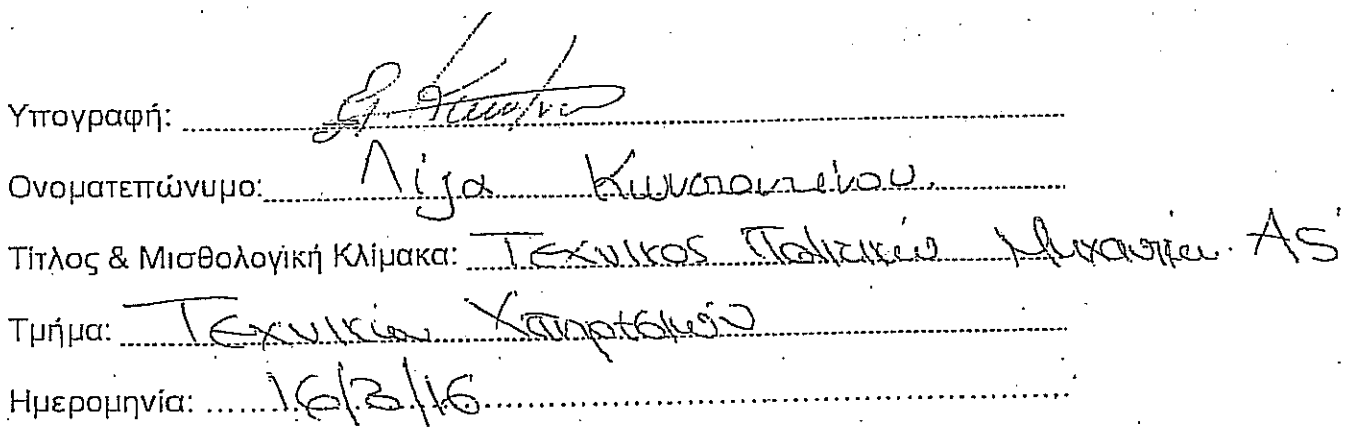 Υπογραφή:
Ονοματεπώνυμο: Λίζα Κωνσταντίνου.
Τίτλος & Μισθολογική Κλίμακα: Τεχνικος Πολιτικών
Τμήμα: Τεχνικών Υπηρεσιών
Ημερομηνία: 16/3/16